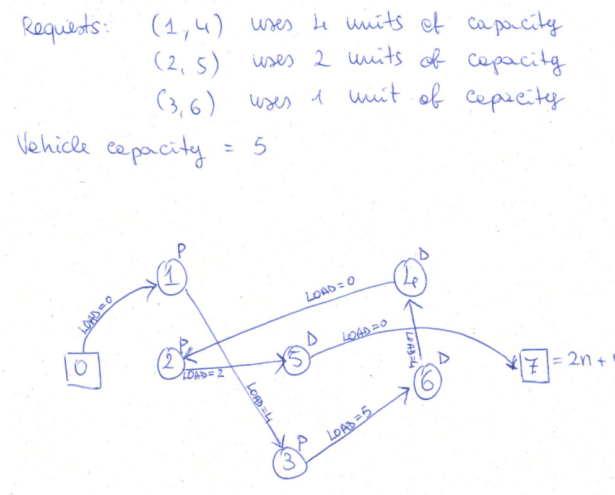 Requests: (1,4) uses 4 units of capacity
(2,5) uses 2 units of capacity
(3,6) uses 1 unit of capacity
Vehicle capacity = 5
P
1
D
4
LOAD=0
LOAD=0
0
P
2
LOAD=2
D
5
LOAD=0
7 = 2n +
LOAD=4
D
6
LOAD=4
P
3
LOAD=5